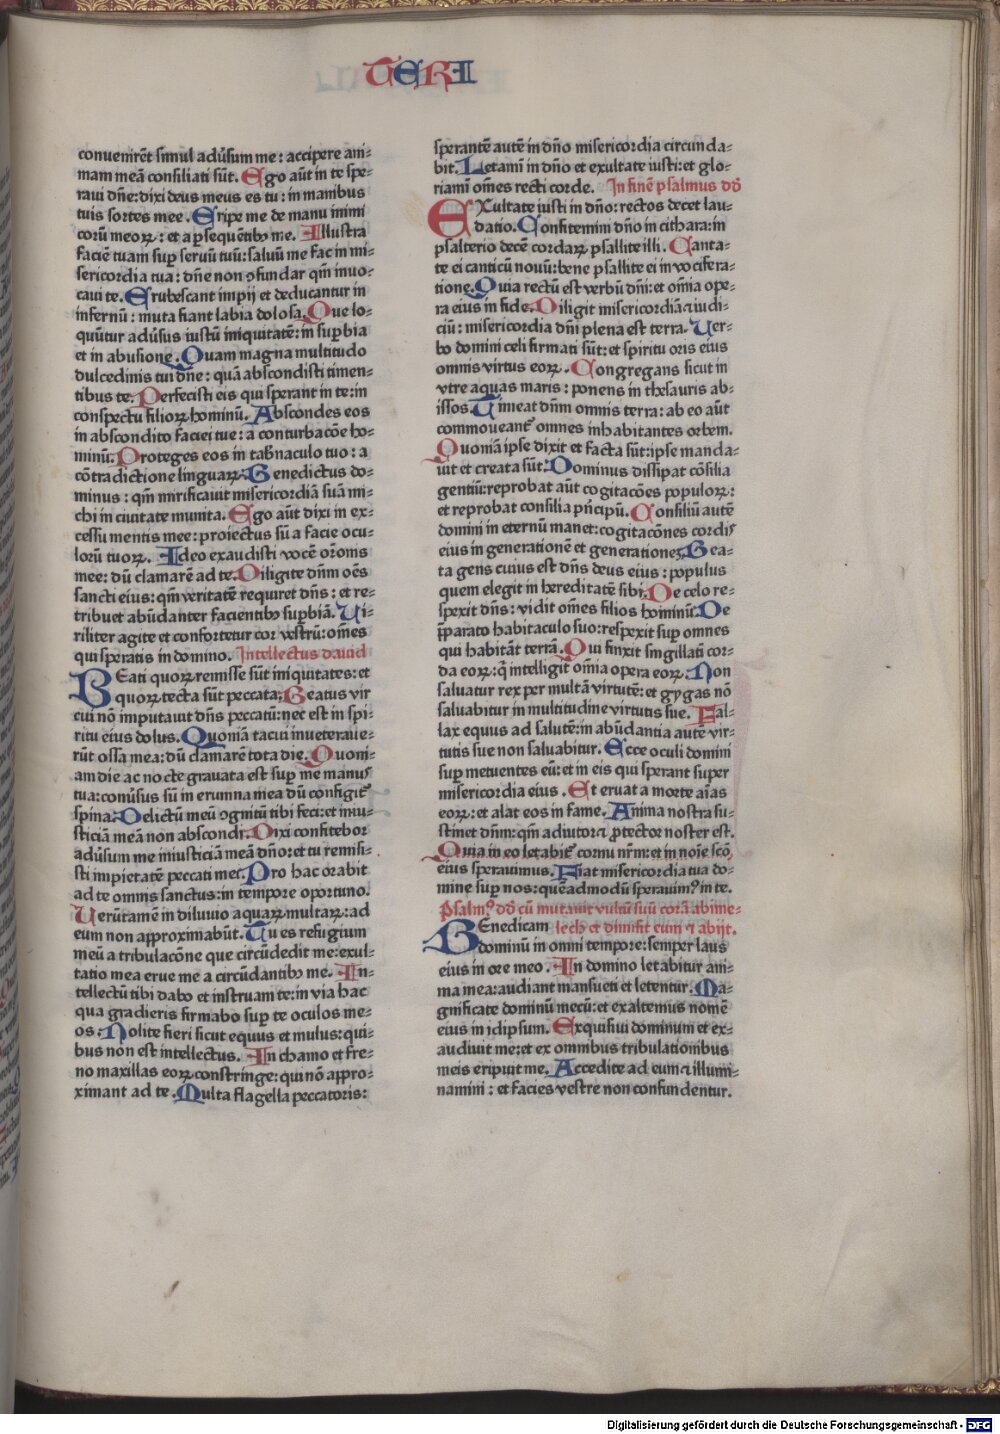 TERI
convenirēt simul adũsum me: accipere ani=
mam meā consiliati sūt. Ego aūt in te spe=
raui dñe: dixi deus meus es tu: in manibus
tuis sortes mee. Eripe me de manu inimi
corū meoꝝ: et a ꝑsequētibꝰ me. Illustra
faciē tuam suꝑ seruū tuū: saluū me fac in mi=
sericordia tua: dñe non ꝯfundar qm̄ inuo=
caui te. Erubescant impij et deducantur in
infernū: muta fiant labia dolosa. Que lo=
quūtur adũsus iustū iniquitatē: in suꝑbia
et in abusione. Quam magna multitudo
dulcedinis tui dñe: quā abscondisti timen=
tibus te. Perfecisti eis qui sperant in te: in
conspectu filioꝝ hominū. Abscondes eos
in abscondito faciei tue: a conturbacōe ho=
minū. Proteges eos in tab̄naculo tuo: a
cōtradictione linguaꝝ. Benedictus do=
minus: qm̄ mirificauit misericordiā suā mi=
chi in ciuitate munita. Ego aūt dixi in ex=
cessu mentis mee: proiectus sū a facie ocu=
lorū tuoꝝ. Ideo exaudisti vocē or̄onis
mee: dū clamarē ad te. Diligite dñm oēs
sancti eius: qm̄ veritatē requiret dñs: et re=
tribuet abūdanter facientibꝰ suꝑbiā. Ui=
riliter agite et confortetur cor vestrū: om̄es
qui speratis in domino. Intellectus dauid
BEati quoꝝ remisse sūt iniquitates: et
quoꝝ tecta sūt peccata. Beatus vir
cui nō imputauit dñs peccatū: nec est in spi=
ritu eius dolus. Quoniā tacui inueteraue=
rūt ossa mea: dū clamarē tota die. Quoni=
am die ac nocte grauata est suꝑ me manus
tua: conũsus sū in erumna mea dū configit̄
spina. Delictū meū ꝯgnitū tibi feci: et iniu=
sticiā meā non abscondi. Dixi confitebor
adũsum me iniusticiā meā dño: et tu remisi=
sti impietatē peccati mei. Pro hac orabit
ad te omnis sanctus: in tempore oportuno.
Uerūtamē in diluuio aquaꝝ multaꝝ: ad
eum non approximabūt. Tu es refugium
meū a tribulacōne que circūdedit me: exul=
tatio mea erue me a circūdantibꝰ me. In=
tellectū tibi dabo et instruam te: in via hac
qua gradieris firmabo suꝑ te oculos me=
os. Nolite fieri sicut equus et mulus: qui=
bus non est intellectus. In chamo et fre=
no maxillas eoꝝ constringe: qui nō appro=
ximant ad te. Multa flagella peccatoris:
sperantē autē in dño misericordia circunda=
bit. Letamī in dño et exultate iusti: et glo=
riamī om̄es recti corde. In finē psalmus dd̄
EXultate iusti in dño: rectos decet lau=
datio. Confitemini dño in cithara: in
psalterio decē cordaꝝ psallite illi. Canta=
te ei canticū nouū: bene psallite ei in vocifera=
tione. Quia rectū est verbū dñi: et om̄ia ope=
ra eius in fide. Diligit misericordiā ⁊ iudi=
ciū: misericordia dñi plena est terra. Uer=
bo domini celi firmati sūt: et spiritu oris eius
omnis virtus eoꝝ. Congregans sicut in
vtre aquas maris: ponens in thesauris ab=
issos. Timeat dñm omnis terra: ab eo aūt
commoueant̄ omnes inhabitantes orbem.
Quoniā ipse dixit et facta sūt: ipse manda=
uit et creata sūt. Dominus dissipat cōsilia
gentiū: reprobat aūt cogitacōes populoꝝ:
et reprobat consilia pñcipū. Consiliū autē
domini in eternū manet: cogitacōnes cordis
eius in generationē et generationes. Bea=
ta gens cuius est dñs deus eius: populus
quem elegit in hereditatē sibi. De celo re=
spexit dñs: vidit om̄es filios hominū. De
p̄parato habitaculo suo: respexit suꝑ omnes
qui habitāt terrā. Qui finxit singillati cor=
da eoꝝ: q̄ intelligit om̄ia opera eoꝝ. Non
saluatur rex per multā virtutē: et gygas nō
saluabitur in multitudine virtutis sue. Fal=
lax equus ad salutē: in abūdantia autē vir=
tutis sue non saluabitur. Ecce oculi domini
suꝑ metuentes eū: et in eis qui sperant super
misericordia eius. Et eruat a morte aīas
eoꝝ: et alat eos in fame. Anima nostra su=
stinet dñm: qm̄ adiutor ⁊ ꝓtector noster est.
Quia in eo letabit̄ cor nr̄m: et in noīe scō
eius sperauimus. Fiat misericordia tua do=
mine suꝑ nos: quēadmodū sperauimꝰ in te.
Psalmꝰ dd̄ cū mutauit vultū suū corā abime=
lech et dimisit eum ⁊ abijt.
BEnedicam
dominū in omni tempore: semper laus
eius in ore meo. In domino letabitur ani=
ma mea: audiant mansueti et letentur. Ma=
gnificate dominū mecū: et exaltemus nomē
eius in idipsum. Exquisiui dominum et ex=
audiuit me: et ex omnibus tribulationibus
meis eripuit me. Accedite ad eum ⁊ illumi=
namini: et facies vestre non confundentur.
Digitalisierung gefördert durch die Deutsche Forschungsgemeinschaft - DFG